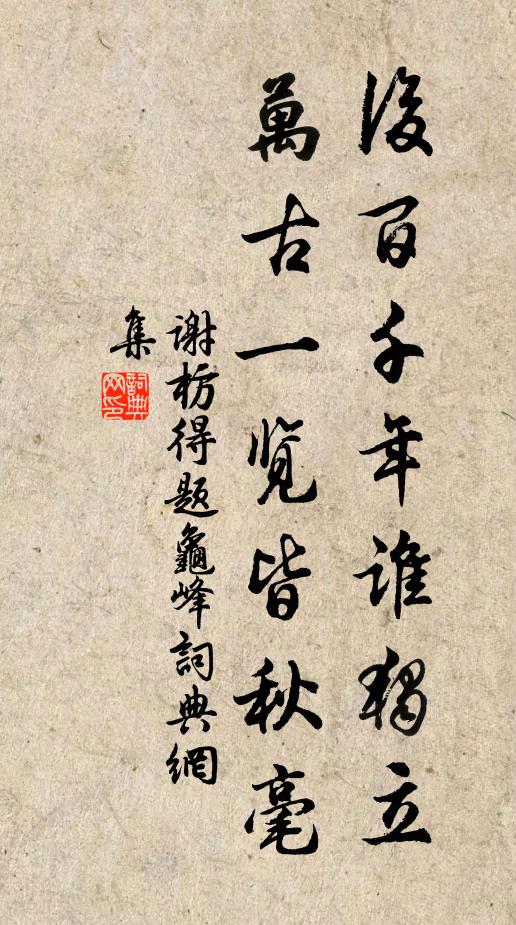 後百千年誰獨立
萬古一覽皆秋毫
謝枋得題龜峰詞典網
集
詞典
網印